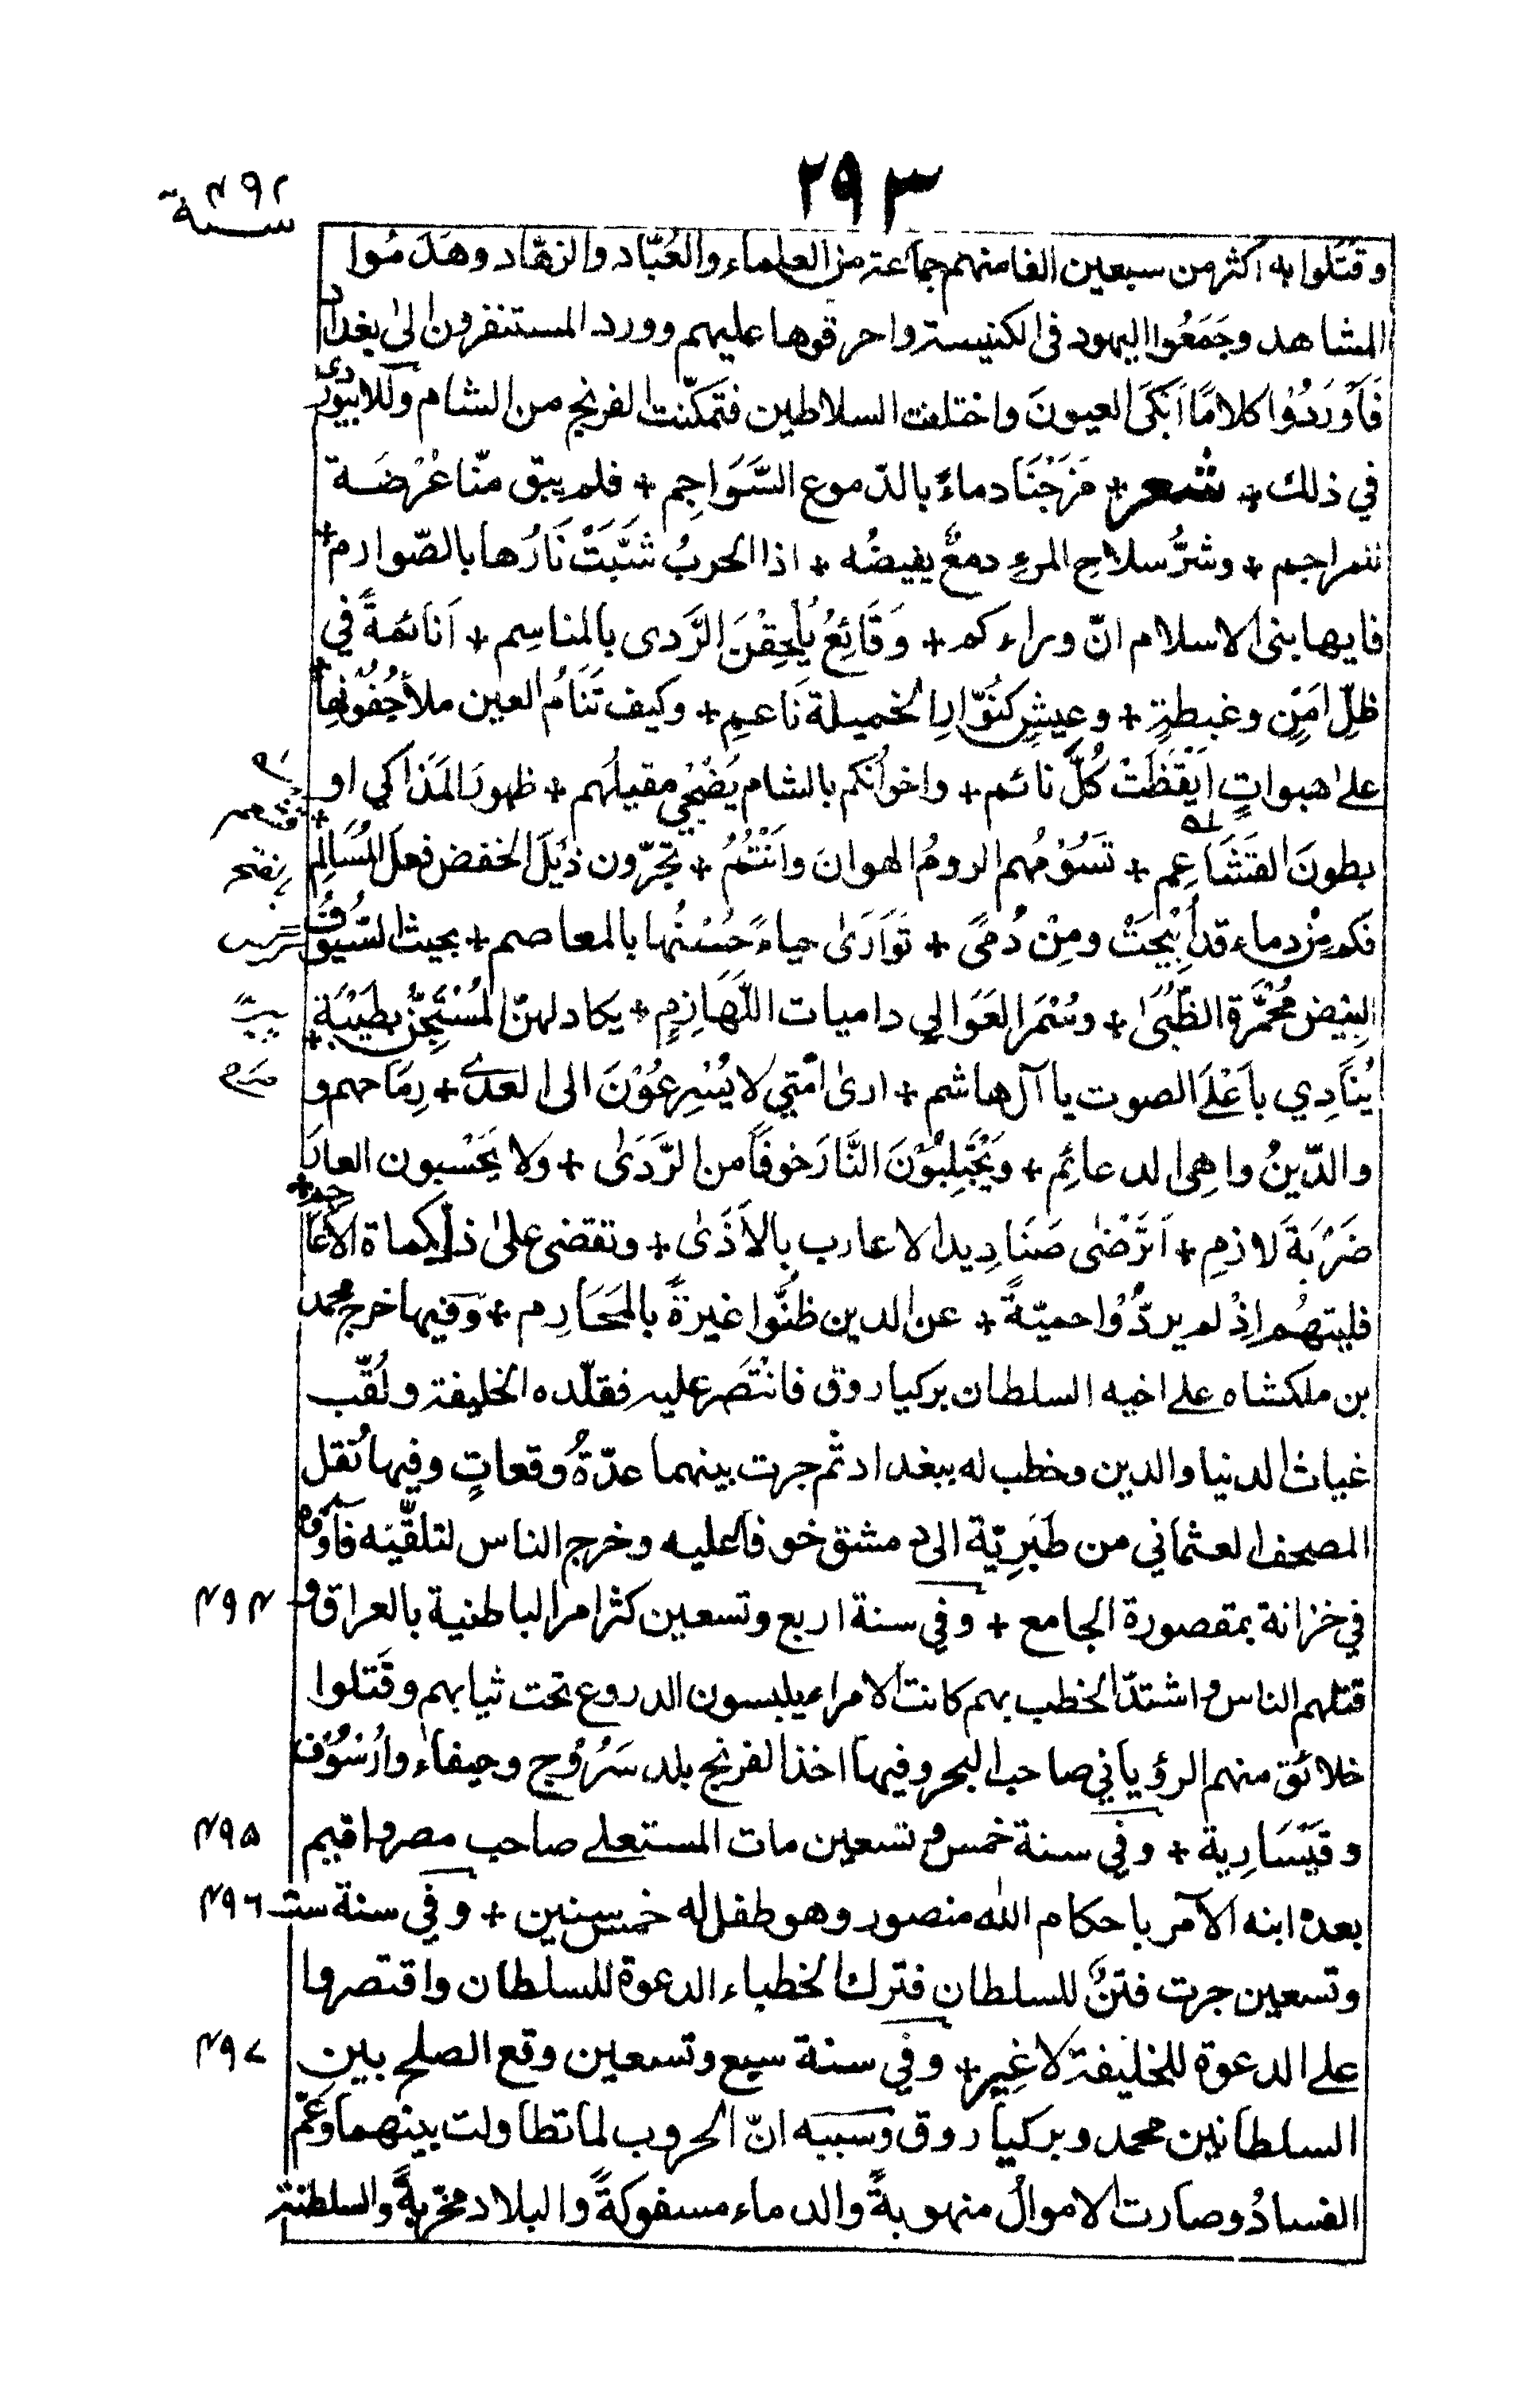 ٢٩٣
سنة ٤٩٢
وقَتَلوا به اكثر من سبعين الفا منهم جماعة من العلماء والعُبّاد والزهّاد وهَدَمُوا
المشاهد وجَمَعُوا اليهود فى الكنيسة واحرقوها عليهم وورد المستنفرون الىٰ بغداد
فَاَوْرَدُوْا كلامًا اَبْكَى العيونَ واختلفت السلاطين فتَمكّنت الفرنج من الشام وللابيوردى
في ذلك + شعر + مَزَجْنَا دماءً بالدّموع السَّوَاجِمِ + فلم يبق منّا عُرْضَة
للمراجم + وشرُّ سلاحِ المرءِ دمعٌ يفيضُه + اذا الحربُ شَبَّتْ نَارُها بالصّوارم +
فايها بنى الاسلام انّ وراءكم + وَقَائِعُ يُلْحِقْنَ الرَّدى بالمناسِم + اَنائمةً في
ظلِّ اَمْنٍ وغبطةٍ + وعيشٍ كنُوّارِ الخميلة نَاعمِ + وكيف تَنَامُ العين ملأ جُفُوْنِها +
علىٰ هبواتٍ اَيْقَظَتْ كُلَّ نائم + واخوانُكم بالشام يَضْحٰي مقيلُهم + ظهورَ المَذَاكي او
بطونَ القَشَاعِم + تَسُوْمُهم الرومُ الهوانَ واَنْتُمُ + تجرّون ذَيْلَ الخفض فعلَ المُسَالِم +
فكم مِنْ دماء قد اُبِيْحَتْ ومِنْ دُمًى + تَوَارَىٰ حياءً حُسْنُها بالمعاصم + بحيث السّيوفُ
البِيْض مُحْمَّرة الظُّبَىٰ + وسُمْر العَوَالِي داميات اللَّهَازِمِ + يكاد لهنّ المُسْتَجِنُّ بطَيْبَةٍ +
يُنَادِي باَعْلَى الصوت يا آل هاشم + ارىٰ اُمّتي لا يُسْرِعُوْنَ الى العدىٰ + رِمَاحهم و
والدّينُ واهِى الدعائِم + ويَجْتَنِبُوْنَ النَّارَ خوفًا من الرَّدَىٰ + ولا يَحْسبون العارَ
ضَرْبَةَ لازمِ + اَتَرْضٰى صَنَادِيد الاعارب بِالاَذَىٰ + وتقضى علىٰ ذل كماة الاعاجم +
فليتهُم اِذْ لم يردّوْا حميّةً + عن الدين ظَنُّوا غيرةً بالمَحَارِم + وفيها خرج محمد
بن ملكشاه على اخيه السلطان بركياروق فانْتَصَر عليه فقلّده الخليفة ولُقّب
غياث الدنيا والدين وخطب له ببغداد ثم جرت بينهما عدّةُ وقعاتٍ وفيها نُقل
المصحف العثماني من طَبَرِيّة الى دمشق خوفًا عليه وخرج الناس لتلقّيه فآووه
٤٩٤ في خزانة بمقصورة الجامع + وفي سنة اربع وتسعين كثر امر الباطنية بالعراق و
قتلهم الناس واشتدّ الخطب بهم كانت الامراء يلبسون الدروع تحت ثيابهم وقَتلوا
خلائق منهم الرؤياني صاحب البحر وفيها اخذ الفرنج بلد سَرُوْج وحيفاء وارُسُوْف
٤٩٥ وقَيْسَارِية + وفي سنة خمس وتسعين مات المستعلى صاحب مصر واقيم
٤٩٦ بعده ابنه الآمر باحكام اللّٰه منصور وهو طفل له خمس سنين + وفي سنة ست
وتسعين جرت فتنٌ للسلطان فترك الخطباء الدعوة للسلطان واقتصروا
٤٩٧ على الدعوة للخليفة لا غير + وفي سنة سبع وتسعين وقع الصلح بين
السلطانين محمد وبركياروق وسببه انّ الحروب لما تطاولت بينهما وعَمّ
الفسادُ وصارت الاموالُ منهوبةً والدماء مسفوكةً والبلاد مخرّبةً والسلطنة